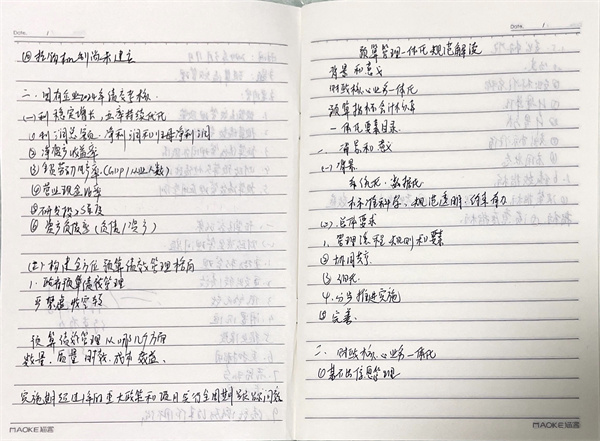 Date. /
④ 控制机制尚未建立
二. 国有企业2024年绩效考核
(一) 利稳定增长, 五率持续优化
① 利润总额, 净利润和归母净利润
② 净资产收益率
③ 全员劳动生产率 (GDP/从业人数)
④ 营业现金比率
⑤ 研发投入强度
⑥ 资产负债率 (负债/资产)
(二) 构建全方位预算绩效管理格局
1. 政府预算绩效管理
预算绩效管理从哪几个方面
数量, 质量, 时效, 成本, 效益.
实施期超过1年的重大政策和项目实行全周期跟踪问效
MAOKE 猫客
Date. /
预算管理一体化规范解读
背景和意义
财政核心业务一体化
预算指标会计核算
一体化要素目录
一. 背景和意义
(一) 背景
系统化、数据化
标准科学、规范透明、约束有力
(二). 总体要求
1. 管理流程、规则和要素
② 协同共享
③ 
4. 分步推进实施
⑤ 完善.
二. 财政核心业务一体化
① 基础信息管理
MAOKE 猫客